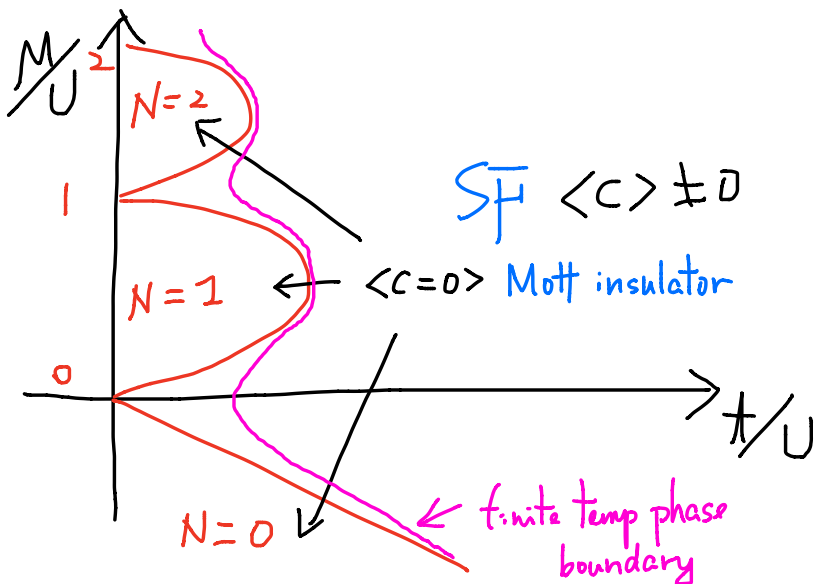 M/U
2
N=2
1
SF <c> ≠ 0
N=1
<c=0> Mott insulator
0
t/U
N=0
finite temp phase
boundary